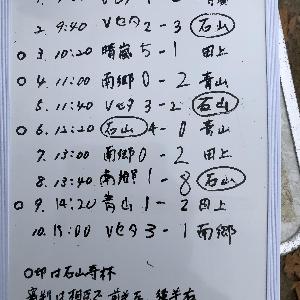 2. 9:40 Vセタ 2 - 3 石山
○ 3. 10:20 晴嵐 5 - 1 田上
○ 4. 11:00 南郷 0 - 2 青山
5. 11:40 Vセタ 3 - 2 石山
○ 6. 12:20 石山 4 - 0 青山
7. 13:00 南郷 0 - 2 田上
8. 13:40 南郷 1 - 8 石山
○ 9. 14:20 青山 1 - 2 田上
10. 15:00 Vセタ 3 - 1 南郷
○印は石山寺杯
審判は相互で 前半左 後半右